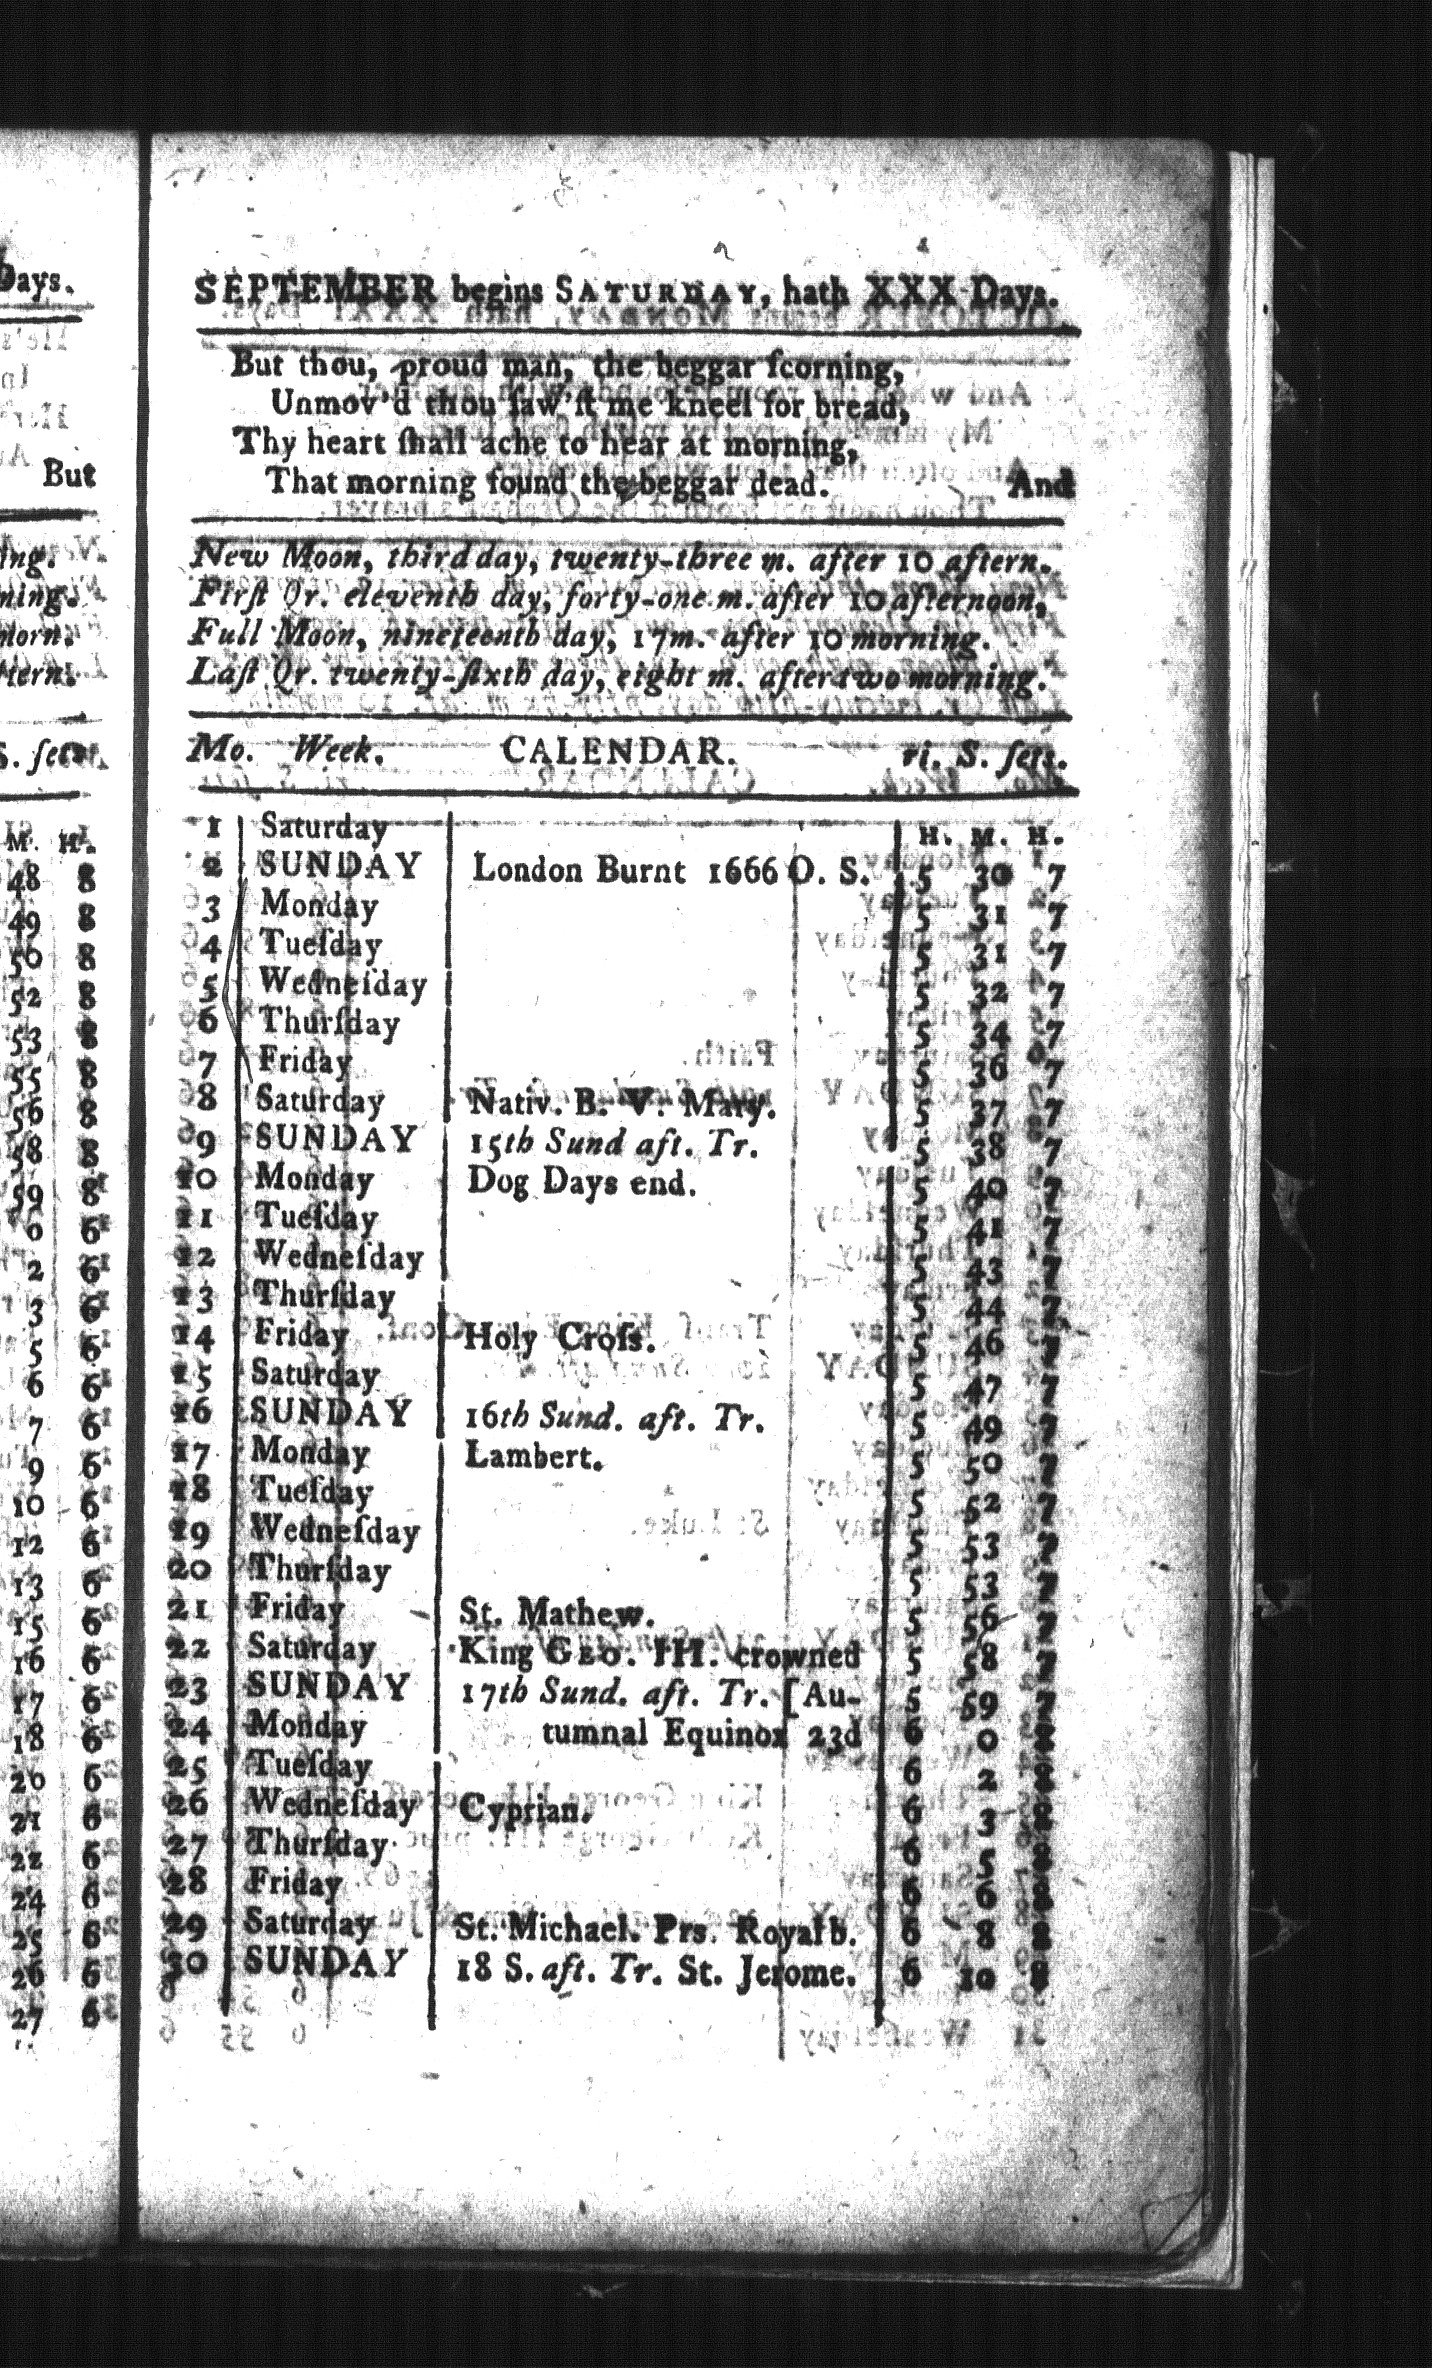 Days.
But
ing.
ning.
morn.
tern.
S. ſets.
M. H.
48 8
49 8
50 8
52 8
53 8
55 8
56 8
58 8
59 8
0 6
2 6
3 6
5 6
6 6
7 6
9 6
10 6
12 6
13 6
15 6
16 6
17 6
18 6
20 6
21 6
22 6
24 6
25 6
26 6
27 6
SEPTEMBER begins SATURDAY, hath XXX Days.
But thou, proud man, the beggar ſcorning,
Unmov'd thou ſaw'ſt me kneel for bread,
Thy heart ſhall ache to hear at morning,
That morning found the beggar dead. And
New Moon, third day, twenty-three m. after 10 aftern.
Firſt Qr. eleventh day, forty-one m. after 10 afternoon,
Full Moon, nineteenth day, 17m. after 10 morning.
Laſt Qr. twenty-ſixth day, eight m. after two morning.
Mo. Week. CALENDAR. ri. S. ſets.
1 Saturday H. M. H.
2 SUNDAY London Burnt 1666 O. S. 5 30 7
3 Monday 5 31 7
4 Tueſday 5 31 7
5 Wedneſday 5 32 7
6 Thurſday 5 34 7
7 Friday 5 36 7
8 Saturday Nativ. B. V. Mary. 5 37 7
9 SUNDAY 15th Sund aft. Tr. 5 38 7
10 Monday Dog Days end. 5 40 7
11 Tueſday 5 41 7
12 Wedneſday 5 43 7
13 Thurſday 5 44 7
14 Friday Holy Croſs. 5 46 7
15 Saturday 5 47 7
16 SUNDAY 16th Sund. aft. Tr. 5 49 7
17 Monday Lambert. 5 50 7
18 Tueſday 5 52 7
19 Wedneſday 5 53 7
20 Thurſday 5 53 7
21 Friday St. Mathew. 5 56 7
22 Saturday King GEO. III. crowned 5 58 7
23 SUNDAY 17th Sund. aft. Tr. [Au- 5 59 7
24 Monday tumnal Equinox 23d 6 0 8
25 Tueſday 6 2 8
26 Wedneſday Cyprian. 6 3 8
27 Thurſday 6 5 8
28 Friday 6 6 8
29 Saturday St. Michael. Prs. Royal b. 6 8 8
30 SUNDAY 18 S. aft. Tr. St. Jerome. 6 10 8